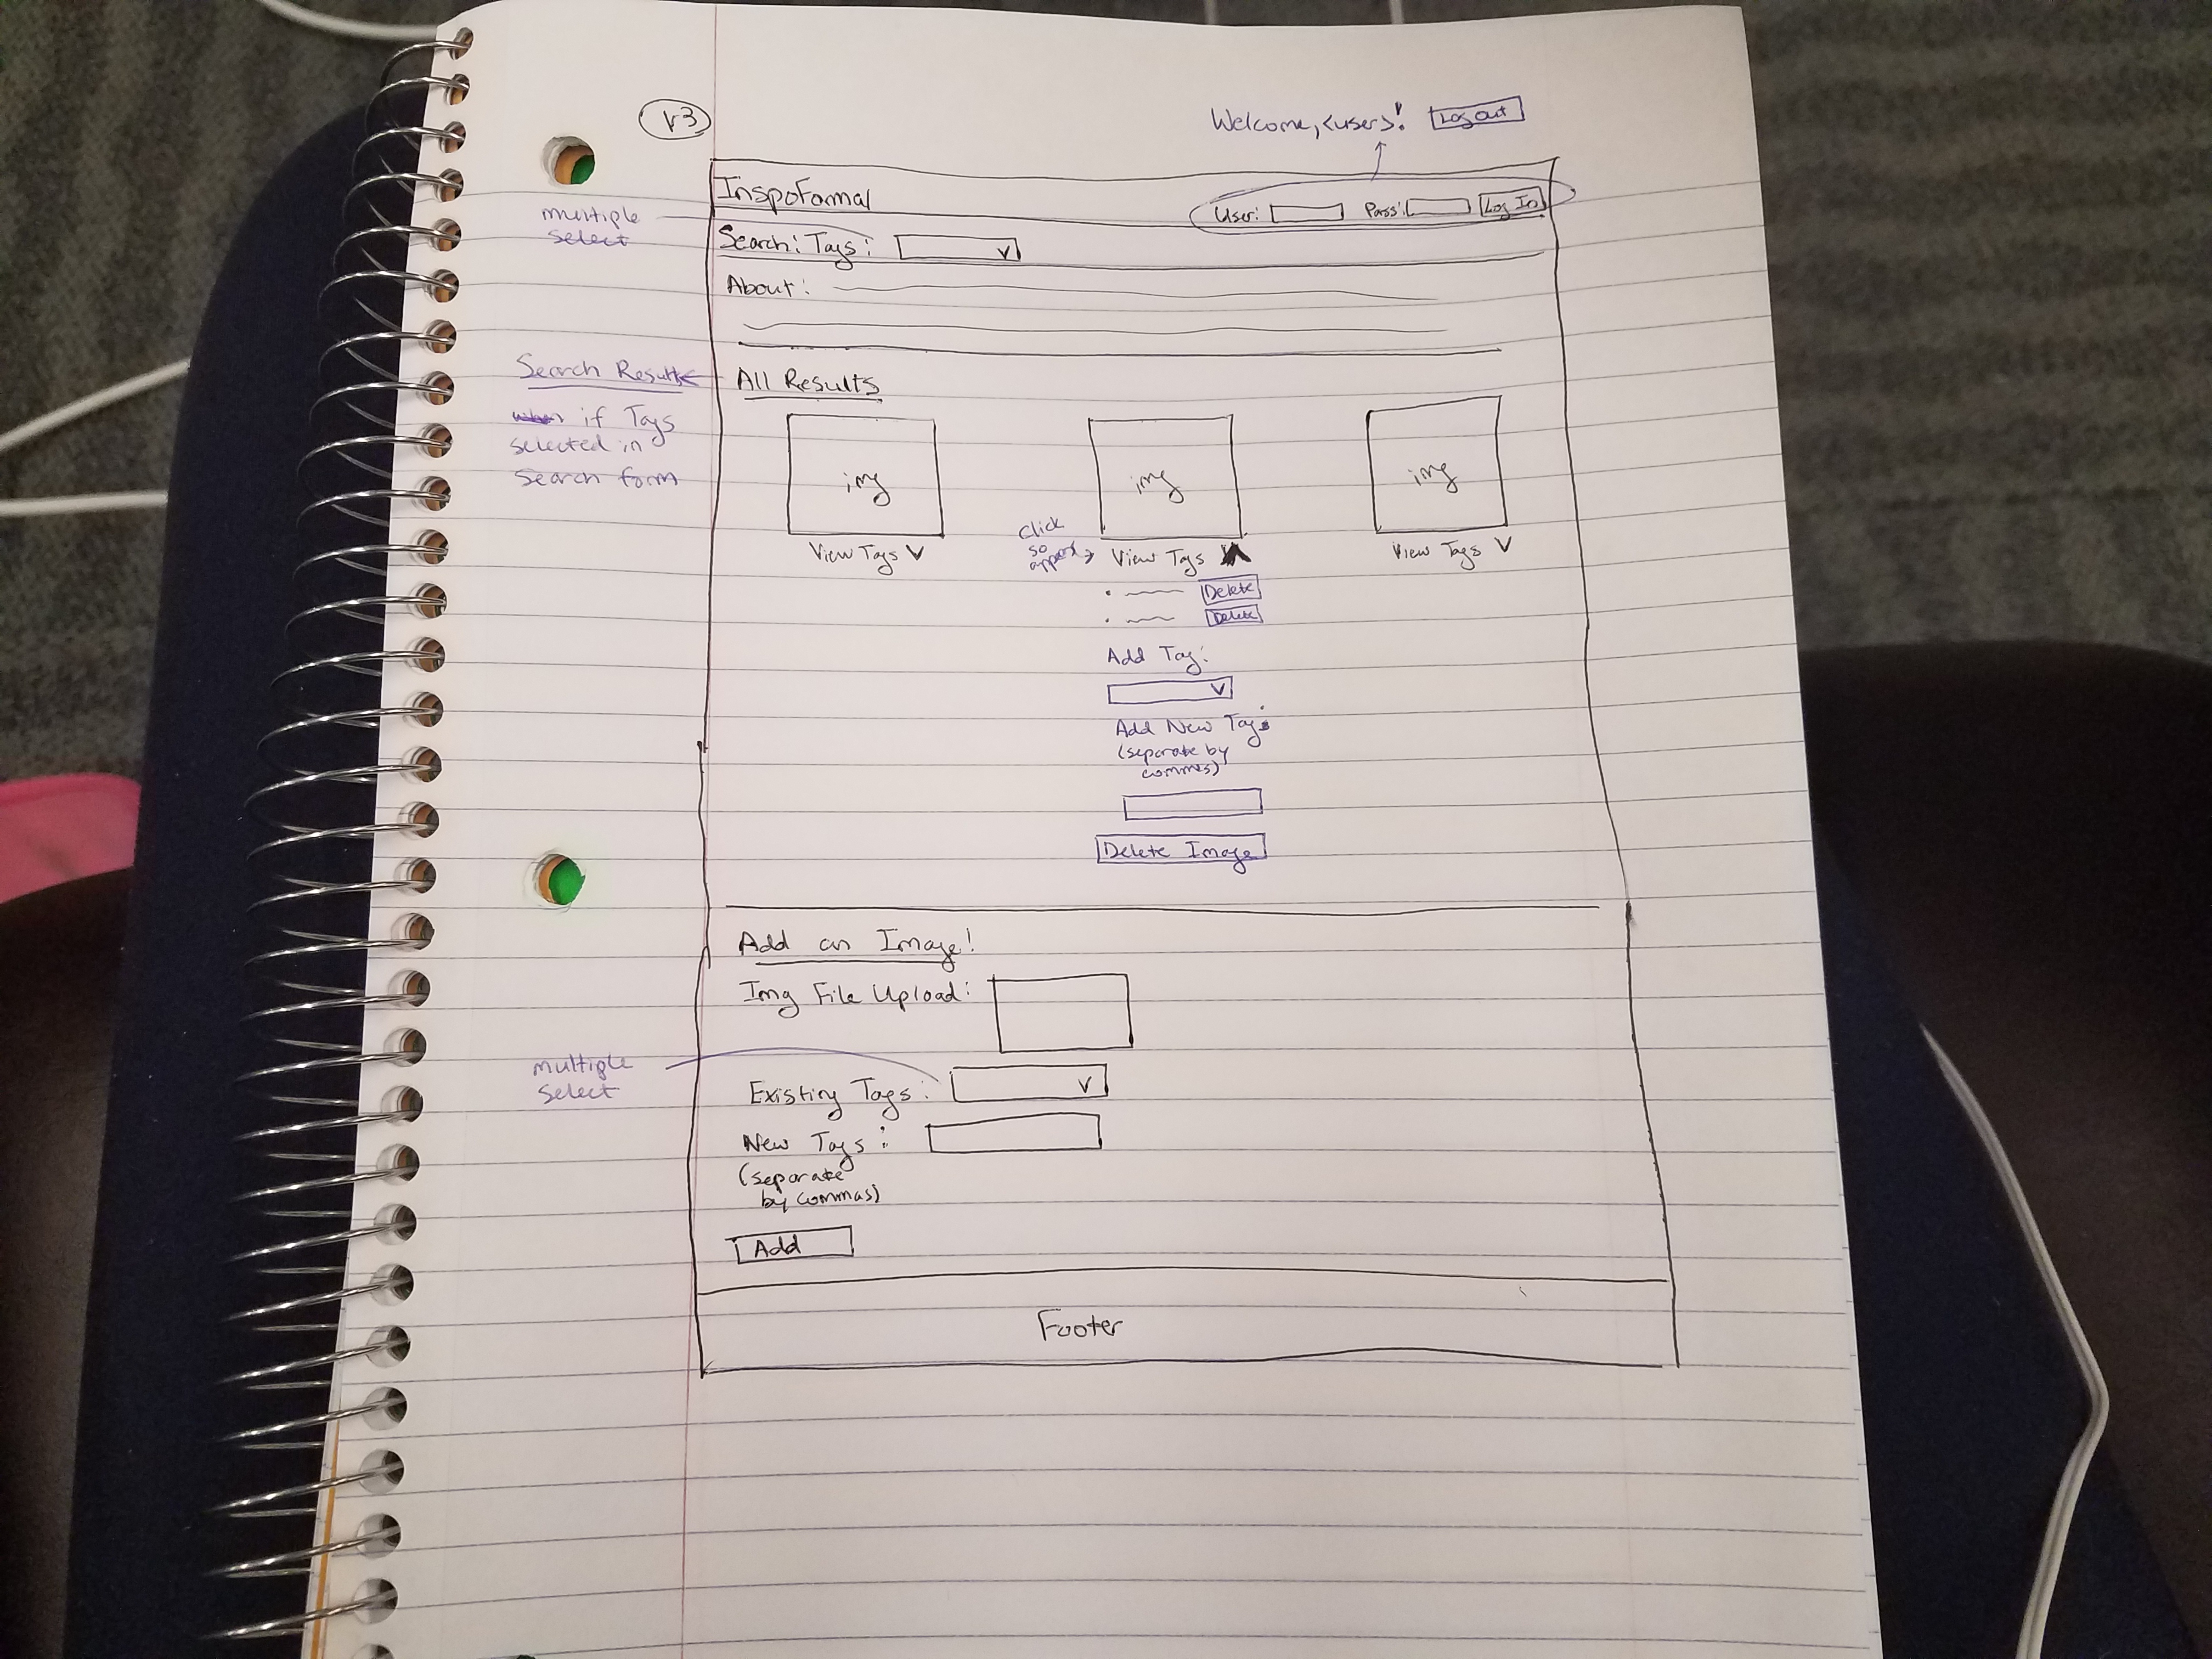 V3
Welcome, <user>! Log out
InspoFormal
User: Pass: Log In
multiple
select
Search: Tags: V
About:
Search Results
All Results
if Tags
selected in
search form
img img img
View Tags V
Click
so
appears
View Tags
View Tags V
Delete
Delete
Add Tag:
V
Add New Tags:
(separate by
commas)
Delete Image
Add an Image!
Img File Upload:
multiple
select
Existing Tags: V
New Tags:
(separate
by commas)
Add
Footer